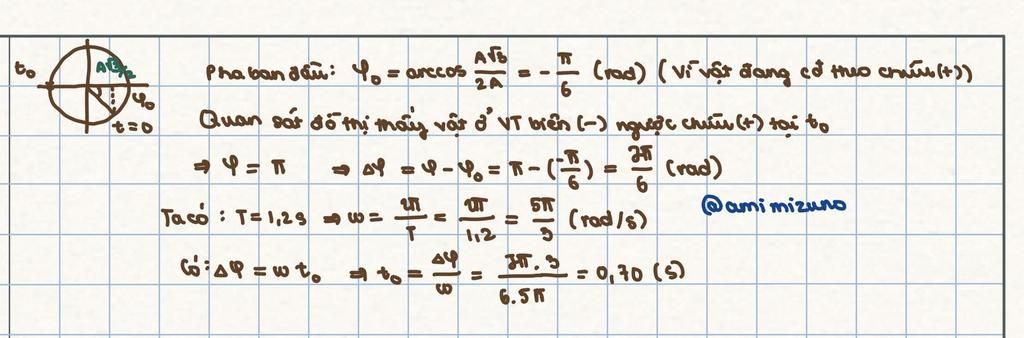 t₀ A√3/2 φ₀ t=0
Pha ban đầu: φ₀ = arccos A√3/2A = -π/6 (rad) (Vì vật đang cđ theo chiều (+))
Quan sát đồ thị thấy vật ở VT biên (-) ngược chiều (+) tại t₀
⇒ φ = π ⇒ Δφ = φ - φ₀ = π - (-π/6) = 7π/6 (rad)
Ta có: T = 1,2s ⇒ ω = 2π/T = 2π/1,2 = 5π/3 (rad/s)
@amimizuno
Có: Δφ = ω t₀ ⇒ t₀ = Δφ/ω = 7π.3/6.5π = 0,70 (s)